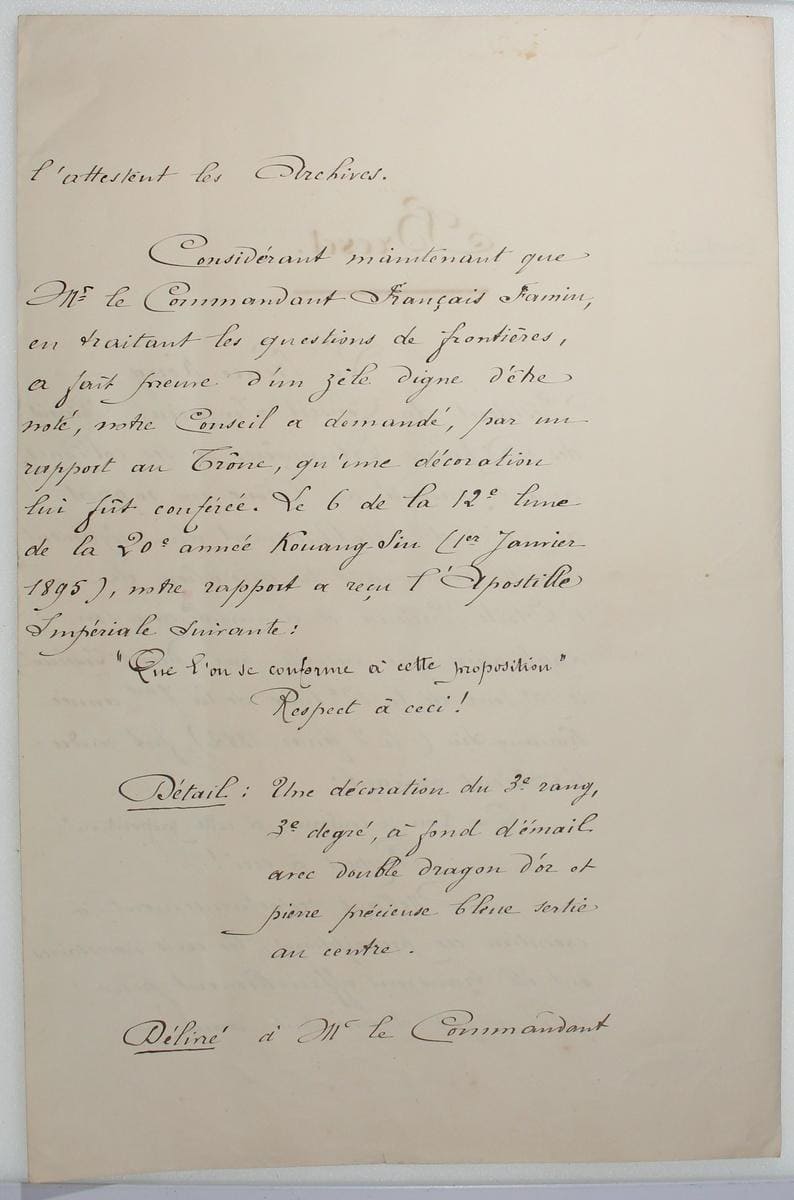 l'attestent les Archives.
Considérant maintenant que
Mr le Commandant Français Famin,
en traitant les questions de frontières,
a fait preuve d'un zèle digne d'être
noté, notre Conseil a demandé, par un
rapport au Trône, qu'une décoration
lui fût conférée. Le 6 de la 12e lune
de la 20e année Kouang-Siu (1er Janvier
1895), notre rapport a reçu l'Apostille
Impériale suivante :
"Que l'on se conforme à cette proposition"
Respect à ceci !
Détail : Une décoration du 3e rang,
3e degré, à fond d'émail
avec double dragon d'or et
pierre précieuse bleue sertie
au centre.
Délivré à Mr le Commandant